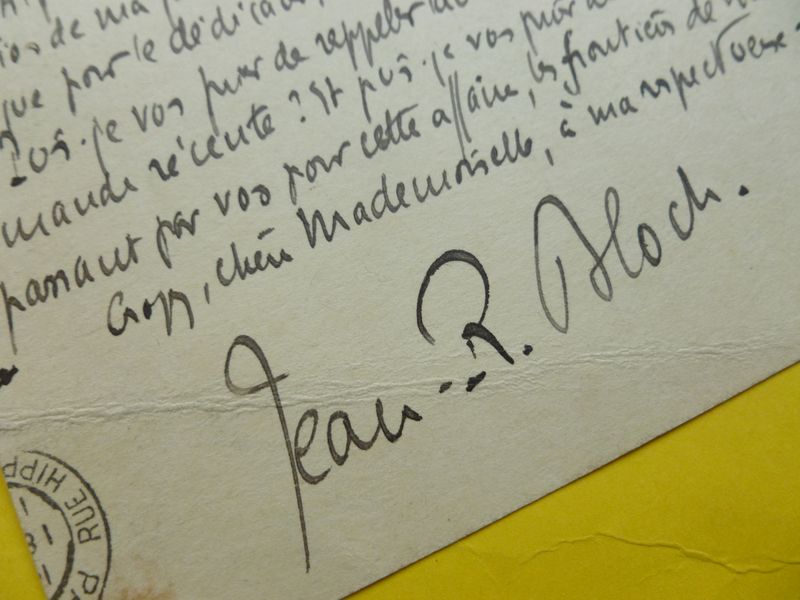 de ma
que pour le dédicacer
Puis-je vos prier de rappeler
mande récente ? Et puis-je vos prier
passant par vos pour cette affaire, les frontières de
Croyez, chère Mademoiselle, à ma respectueuse
Jean-R. Bloch.
RUE HIPP